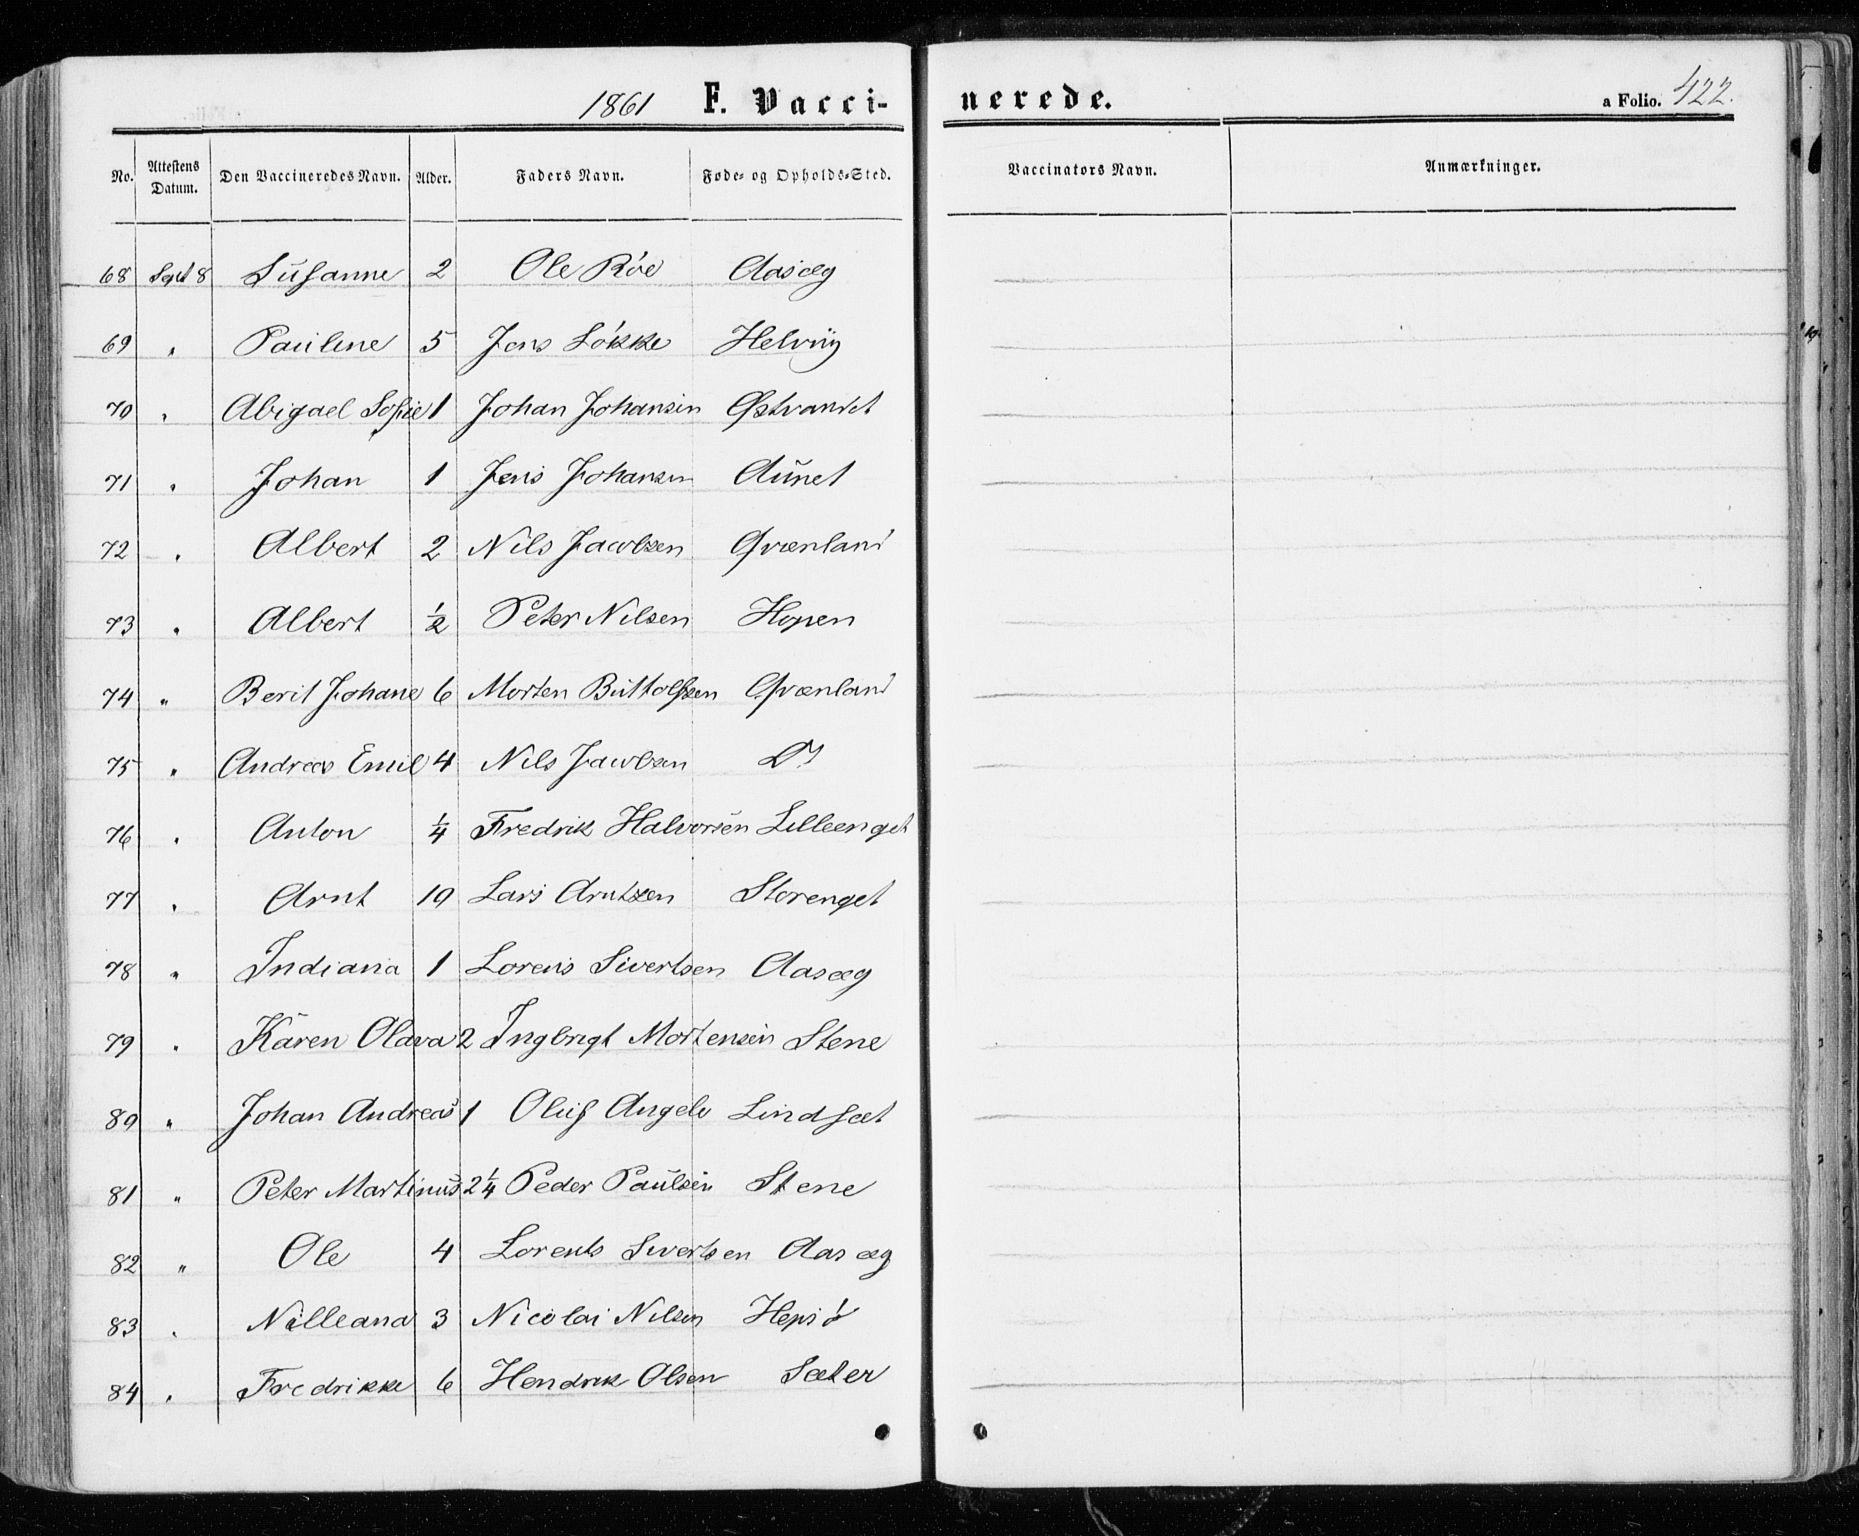 1861 F. Vacci- nerede. a Folio. 422.
No. Attestens Datum. Den Vaccineredes Navn. Alder. Faders Navn. Føde- og Opholds-Sted. Vaccinators Navn. Anmærkninger.
68 Sept 8 Susanne 2 Ole Røe Aasæg
69 " Pauline 5 Jens Løkke Helviig
70 " Abigael Sofie 1 Johan Johansen Østvandet
71 " Johan 1 Jens Johansen Aunet
72 " Albert 2 Nils Jacobsen Qvænland
73 " Albert 1/2 Peter Nilsen Hopen
74 " Berit Johane 6 Morten Buttolfsen Qvænland
75 " Andreas Emil 4 Nils Jacobsen Do
76 " Anton 1/4 Fredrik Halvorsen Lilleenget
77 " Arnt 10 Lars Arntzen Storenget
78 " Indiana 1 Lorens Sivertsen Aasæg
79 " Karen Olava 2 Ingbrigt Mortensen Stene
80 " Johan Andreas 1 Oluf Angelv Lindsæt
81 " Peter Martinus 2 1/4 Peder Paulsen Stene
82 " Ole 4 Lorents Sivertsen Aasæg
83 " Nilleana 3 Nicolai Nilsen Hepsø
84 " Fredrikke 6 Hendrik Olsen Sæter